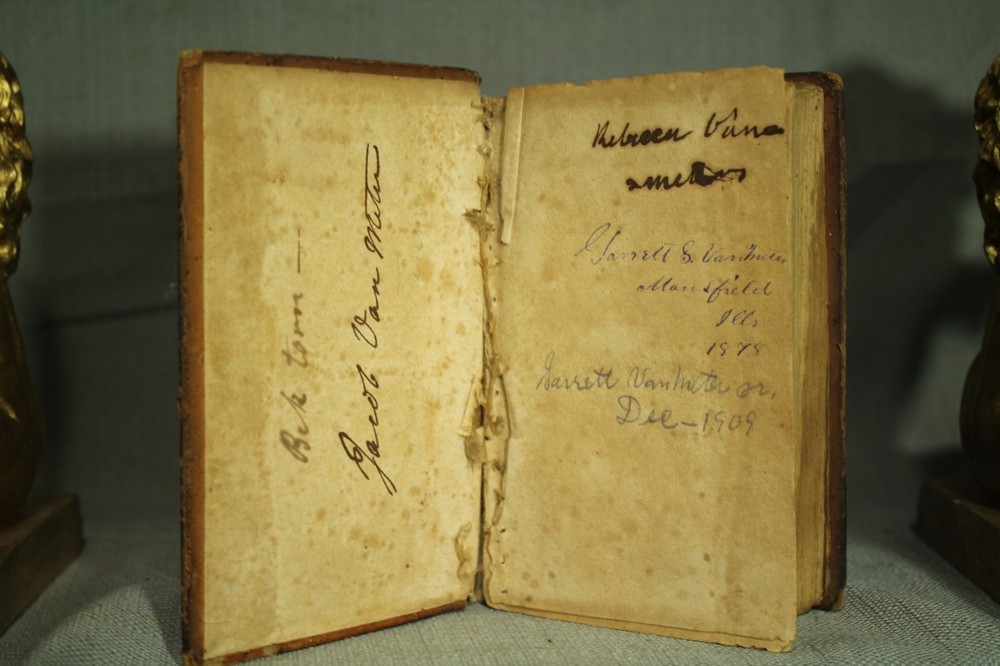 Jacob Van Meter
Rebecca Vane
Garrett G. VanMeter
Mansfield
Ills
1878
Garrett VanMeter jr,
Dec-1909